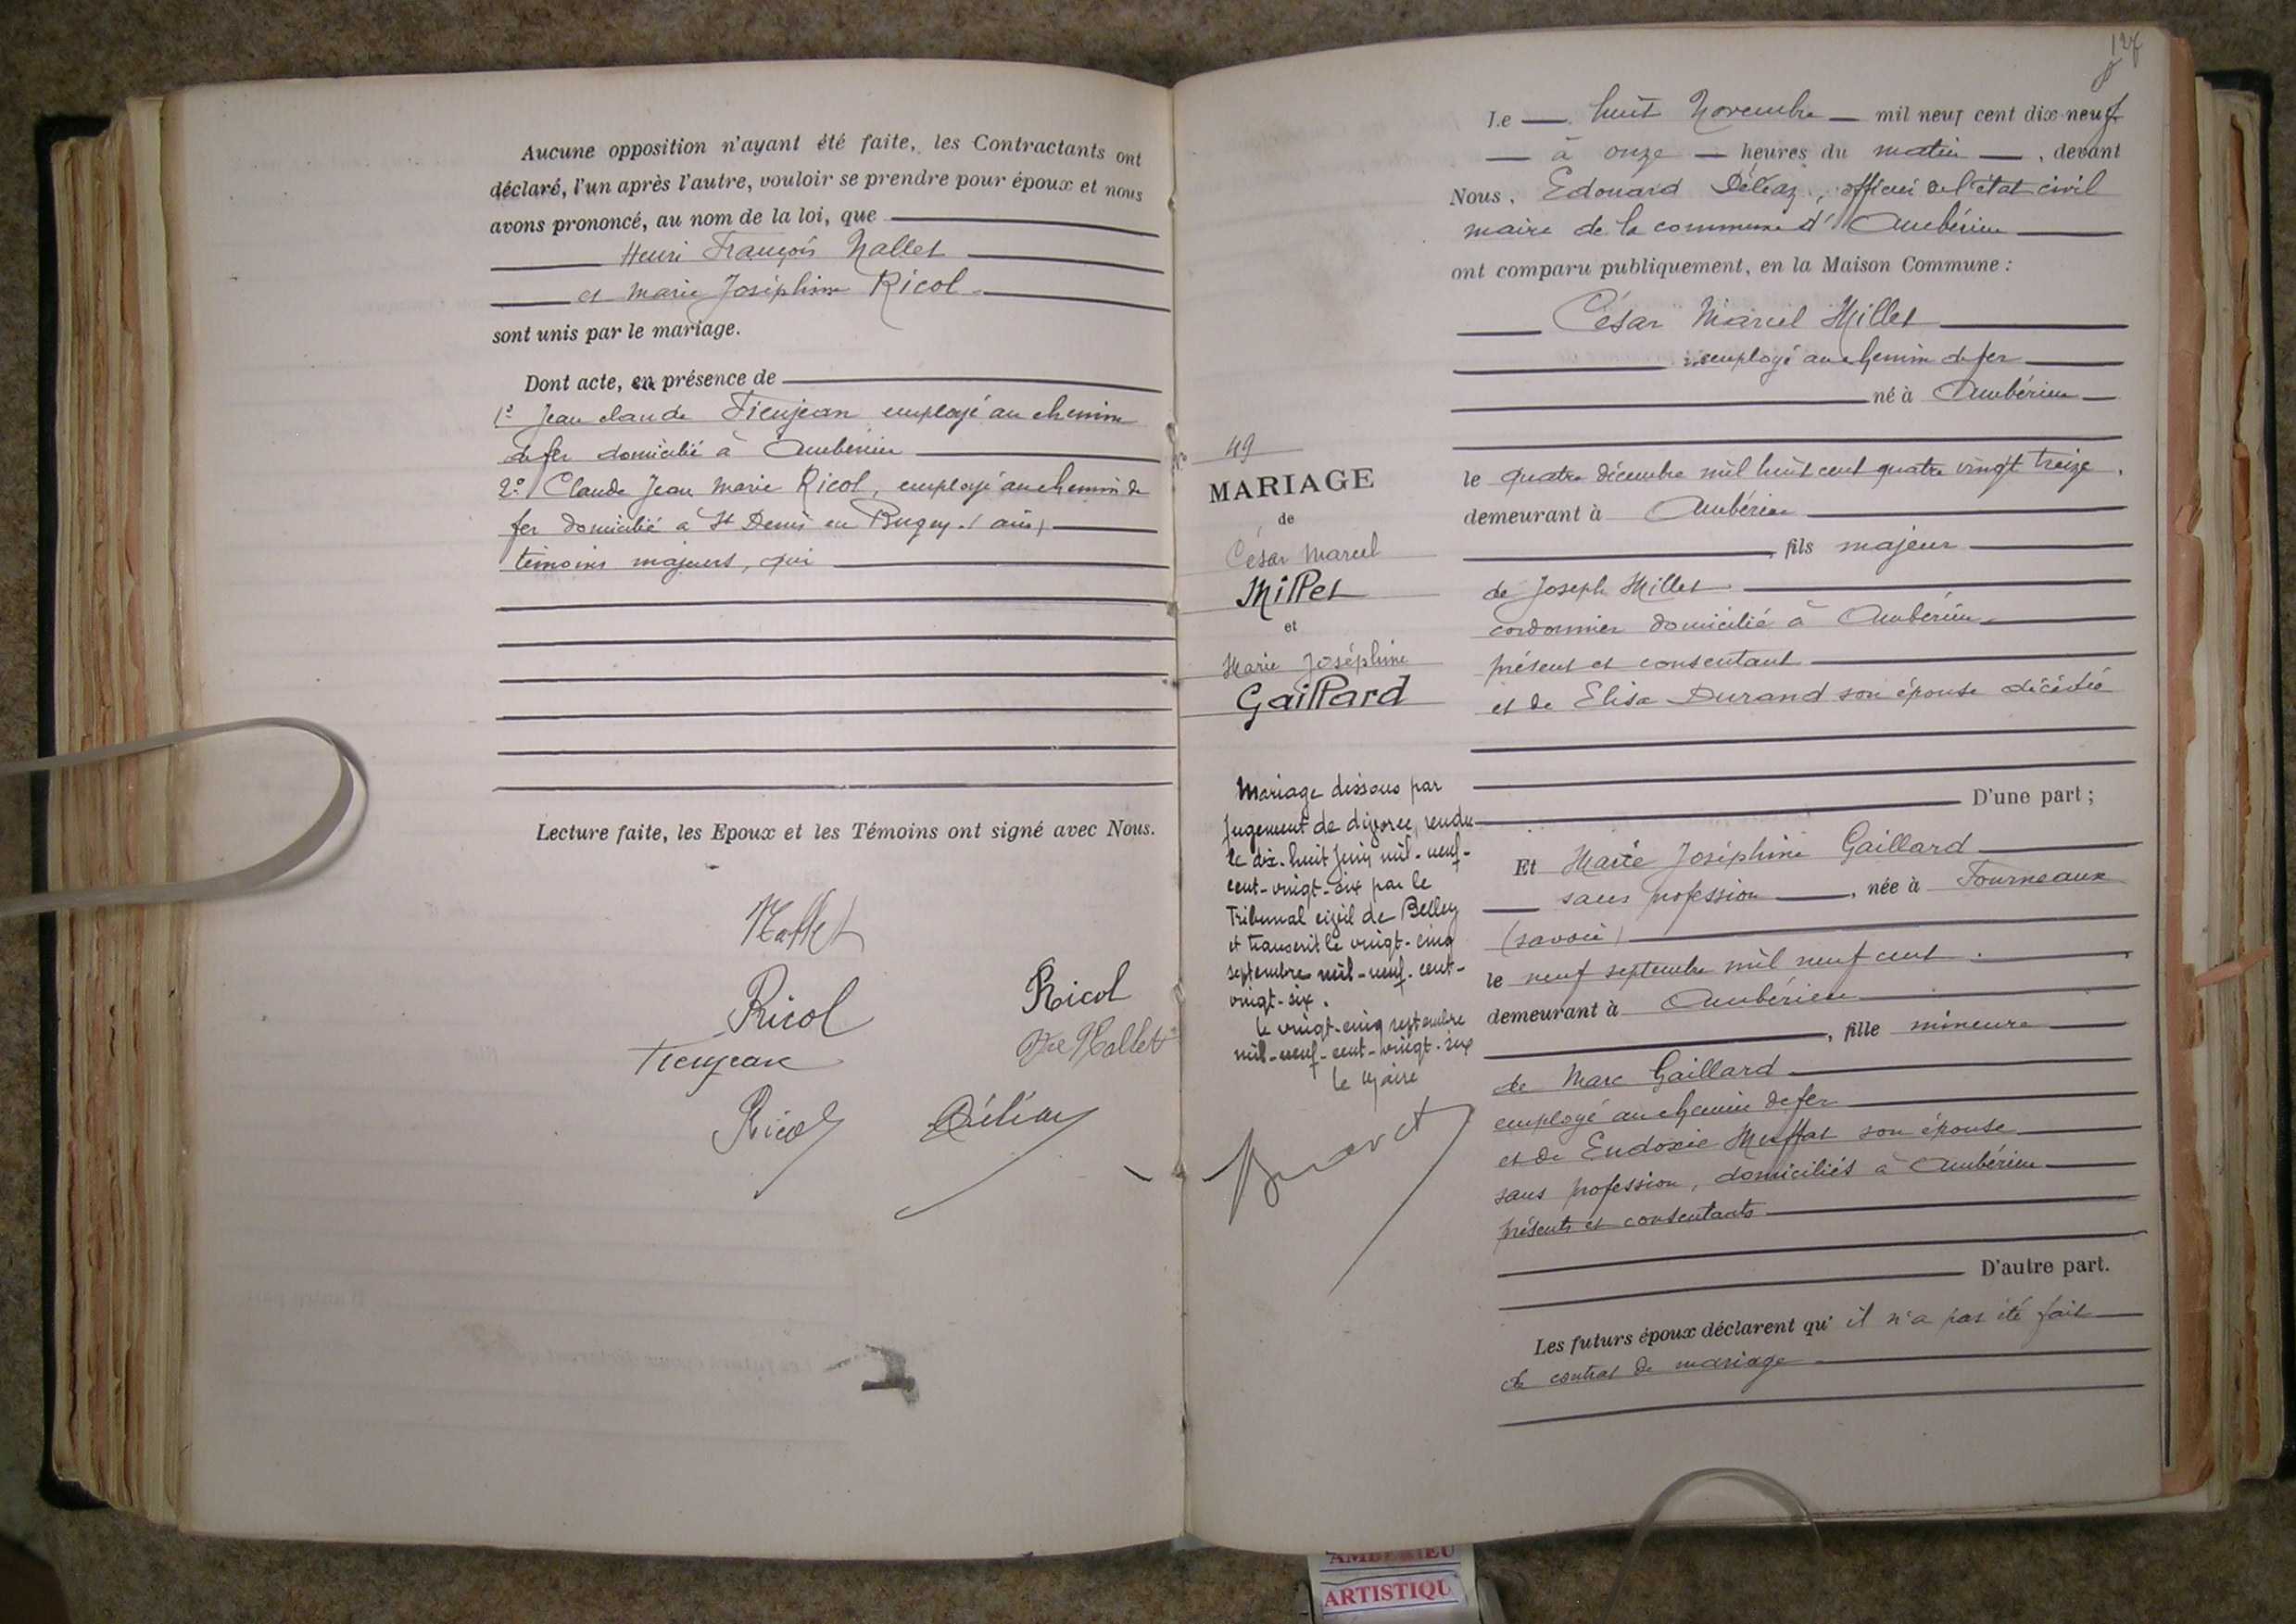 Aucune opposition n'ayant été faite, les Contractants ont
déclaré, l'un après l'autre, vouloir se prendre pour époux et nous
avons prononcé, au nom de la loi, que
Henri François Nallet
et Marie Joséphine Ricol
sont unis par le mariage.
Dont acte, en présence de
1º Jean claude Tieujean employé au chemin
de fer domicilié à Ambérieu
2º Claude Jean Marie Ricol, employé au chemin de
fer domicilié à St Denis en Bugey (ain)
témoins majeurs, qui
Lecture faite, les Epoux et les Témoins ont signé avec Nous.
Nallet
Ricol
Ricol
Vve Nallet
Tieujean
Ricol
Déliaz
127
Le huit Novembre mil neuf cent dix-neuf
à onze heures du matin, devant
Nous, Edouard Déliaz, officier de l'état civil
maire de la commune d'Ambérieu
ont comparu publiquement, en la Maison Commune :
César Marcel Millet
employé au chemin de fer
né à Ambérieu
le quatre décembre mil huit cent quatre vingt treize,
demeurant à Ambérieu
, fils majeur
de Joseph Millet
cordonnier domicilié à Ambérieu
présent et consentant
et de Elisa Durand son épouse décédée
D'une part ;
Et Marie Joséphine Gaillard
sans profession, née à Fourneaux
(savoie)
le neuf septembre mil neuf cent
demeurant à Ambérieu
, fille mineure
de Marc Gaillard
employé au chemin de fer
et de Eudoxie Muffat son épouse
sans profession, domiciliés à Ambérieu
présents et consentants
D'autre part.
Les futurs époux déclarent qu'il n'a pas été fait
de contrat de mariage
No 49
MARIAGE
de
César Marcel
Millet
et
Marie Joséphine
Gaillard
Mariage dissous par
Jugement de divorce, rendu
le dix-huit Juin mil-neuf-
cent-vingt-six par le
Tribunal civil de Belley
et transcrit le vingt-cinq
septembre mil-neuf-cent-
vingt-six.
le vingt-cinq septembre
mil-neuf-cent-vingt-six
le Maire
AMBERIEU
ARTISTIQU